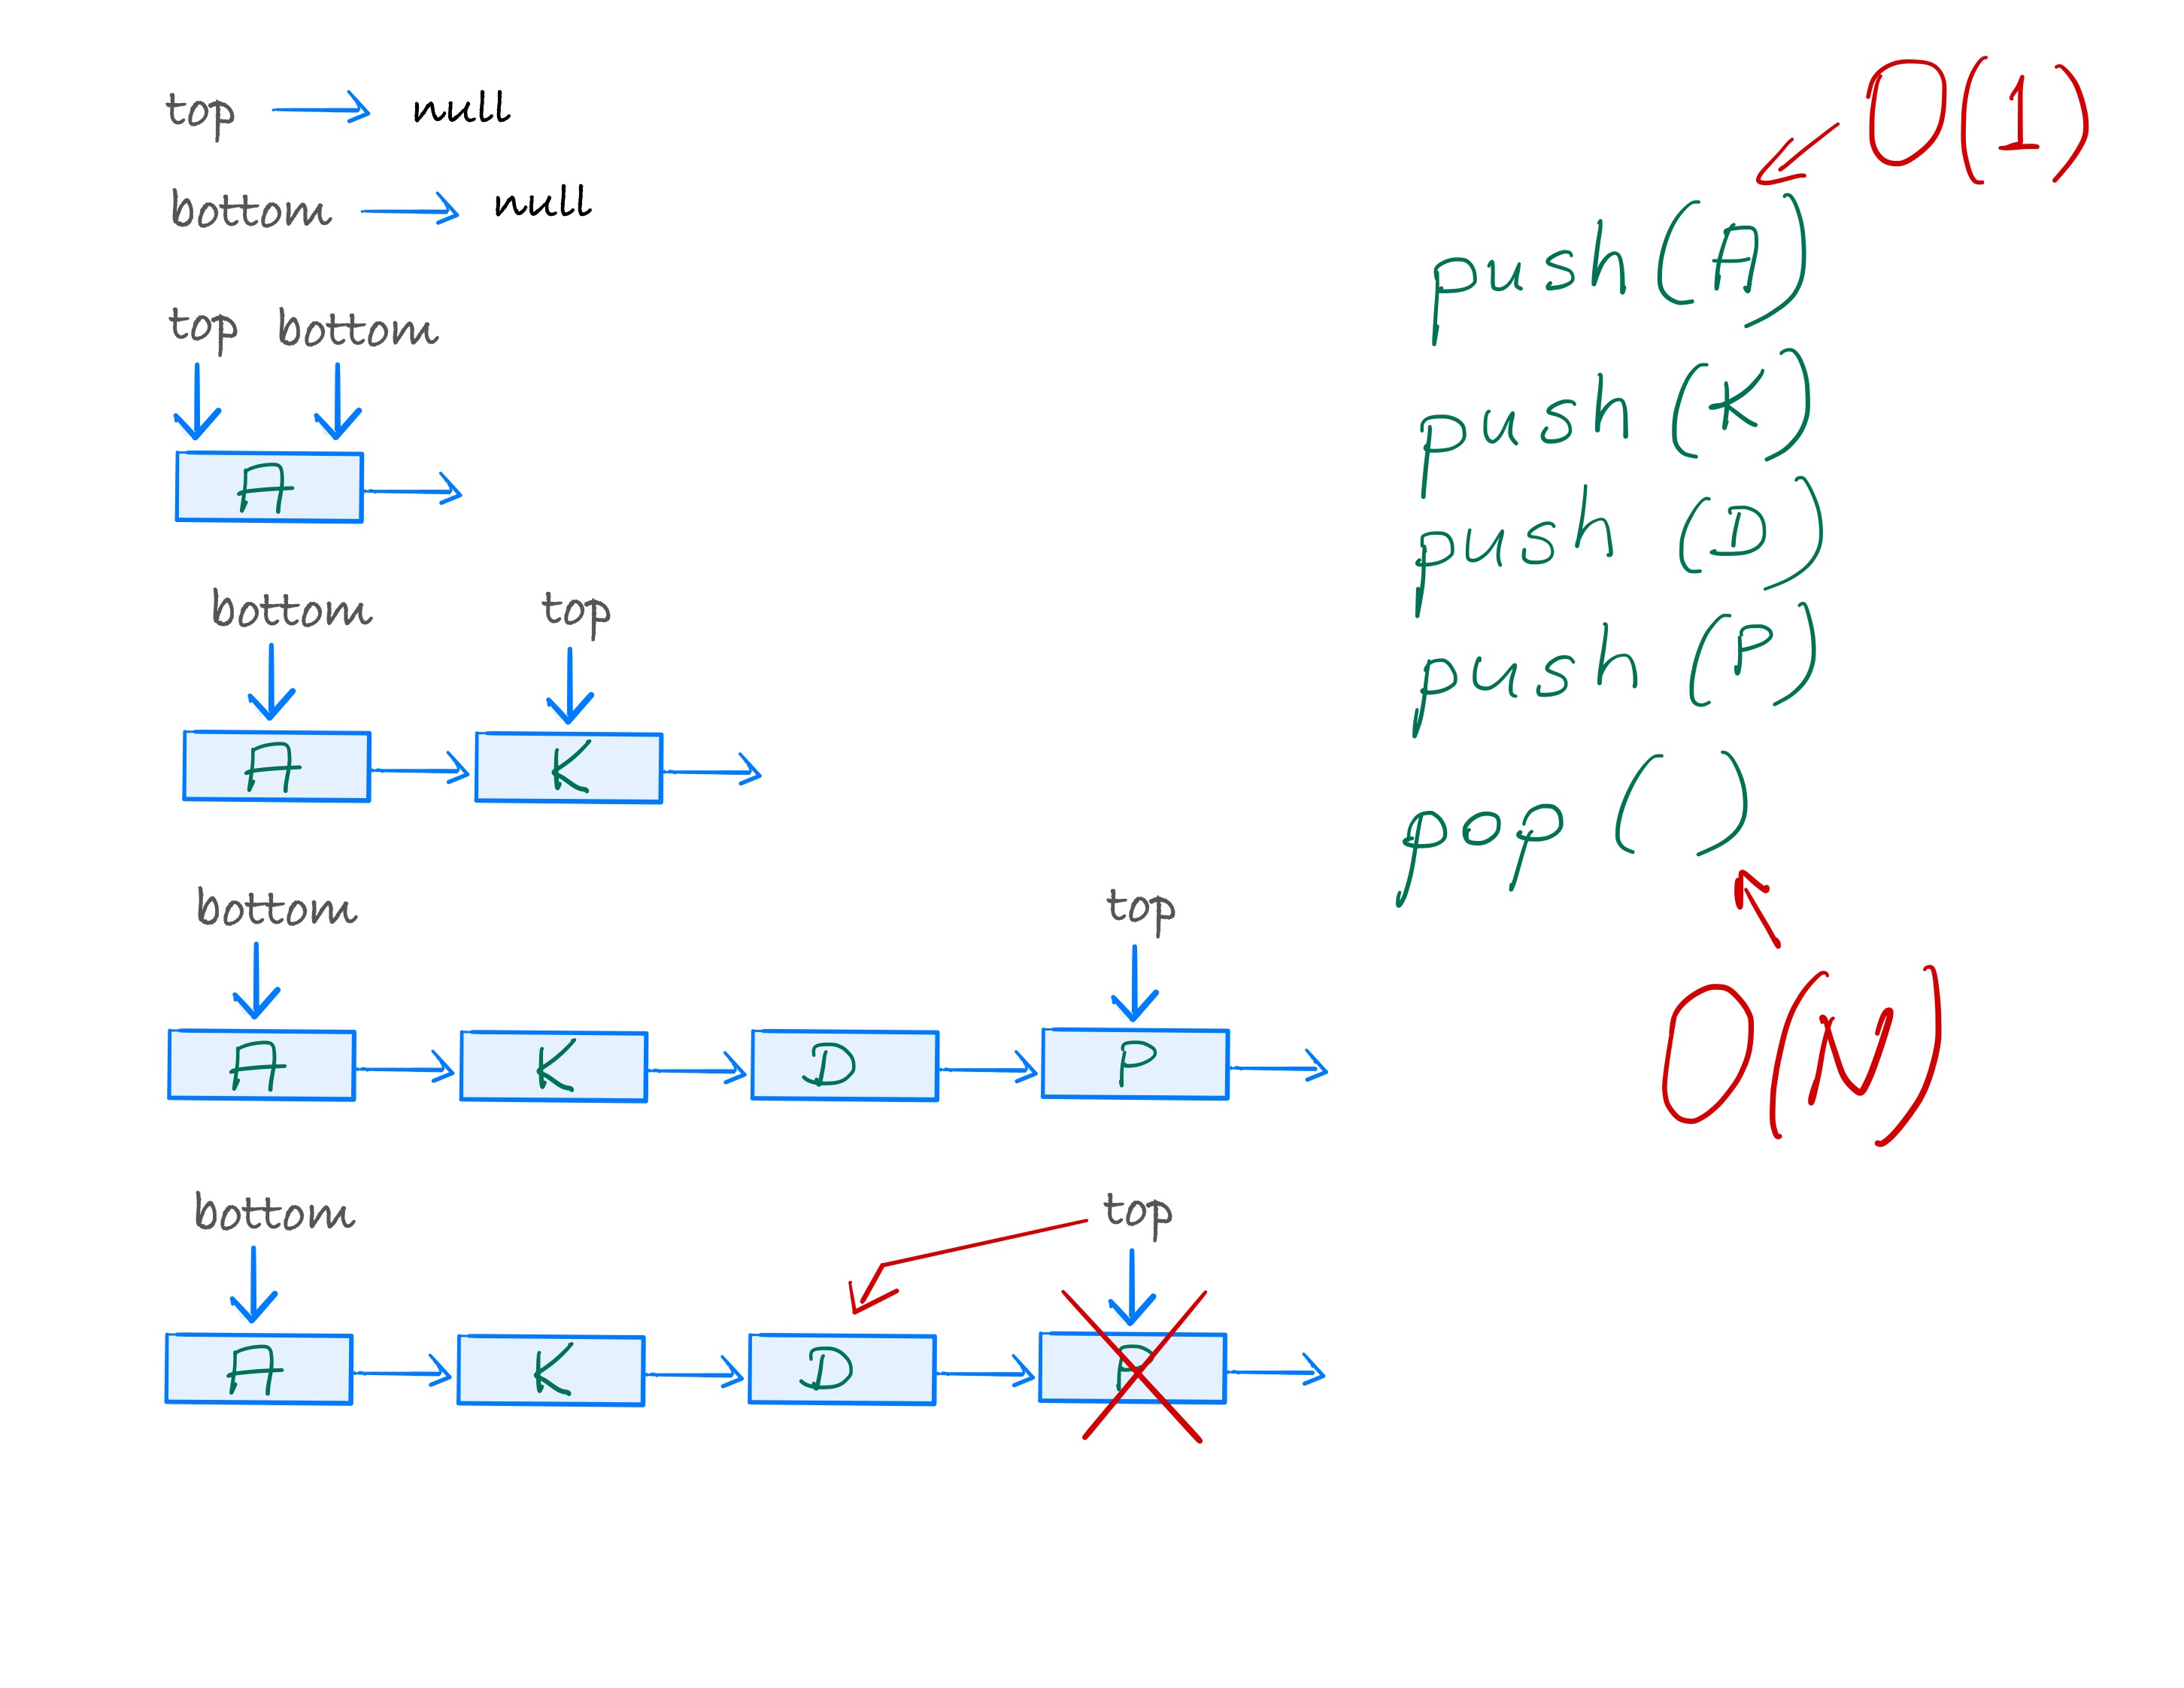 top null
bottom null
top bottom
A
bottom top
A K
bottom top
A K D P
bottom top
A K D P
O(1)
push(A)
push(K)
push(D)
push(P)
pop()
O(N)